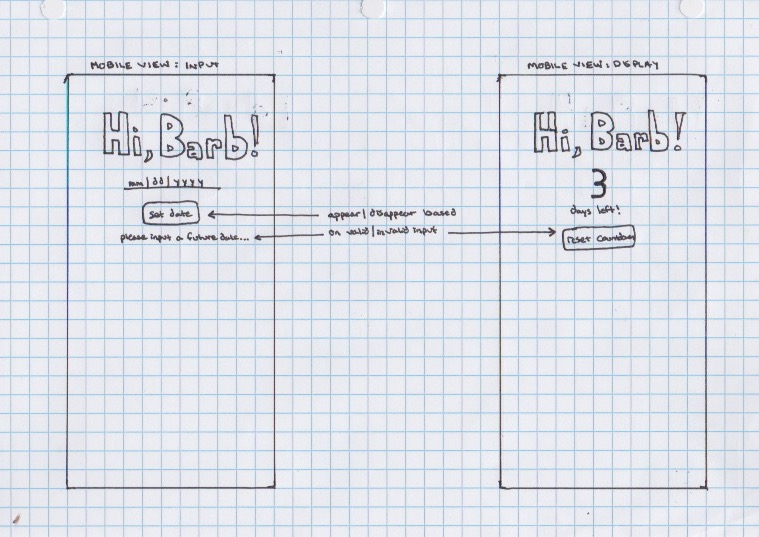 MOBILE VIEW: INPUT
Hi, Barb!
mm/dd/yyyy
set date
please input a future date...
appear/disappear based
on valid/invalid input
MOBILE VIEW: DISPLAY
Hi, Barb!
3
days left!
reset countdown